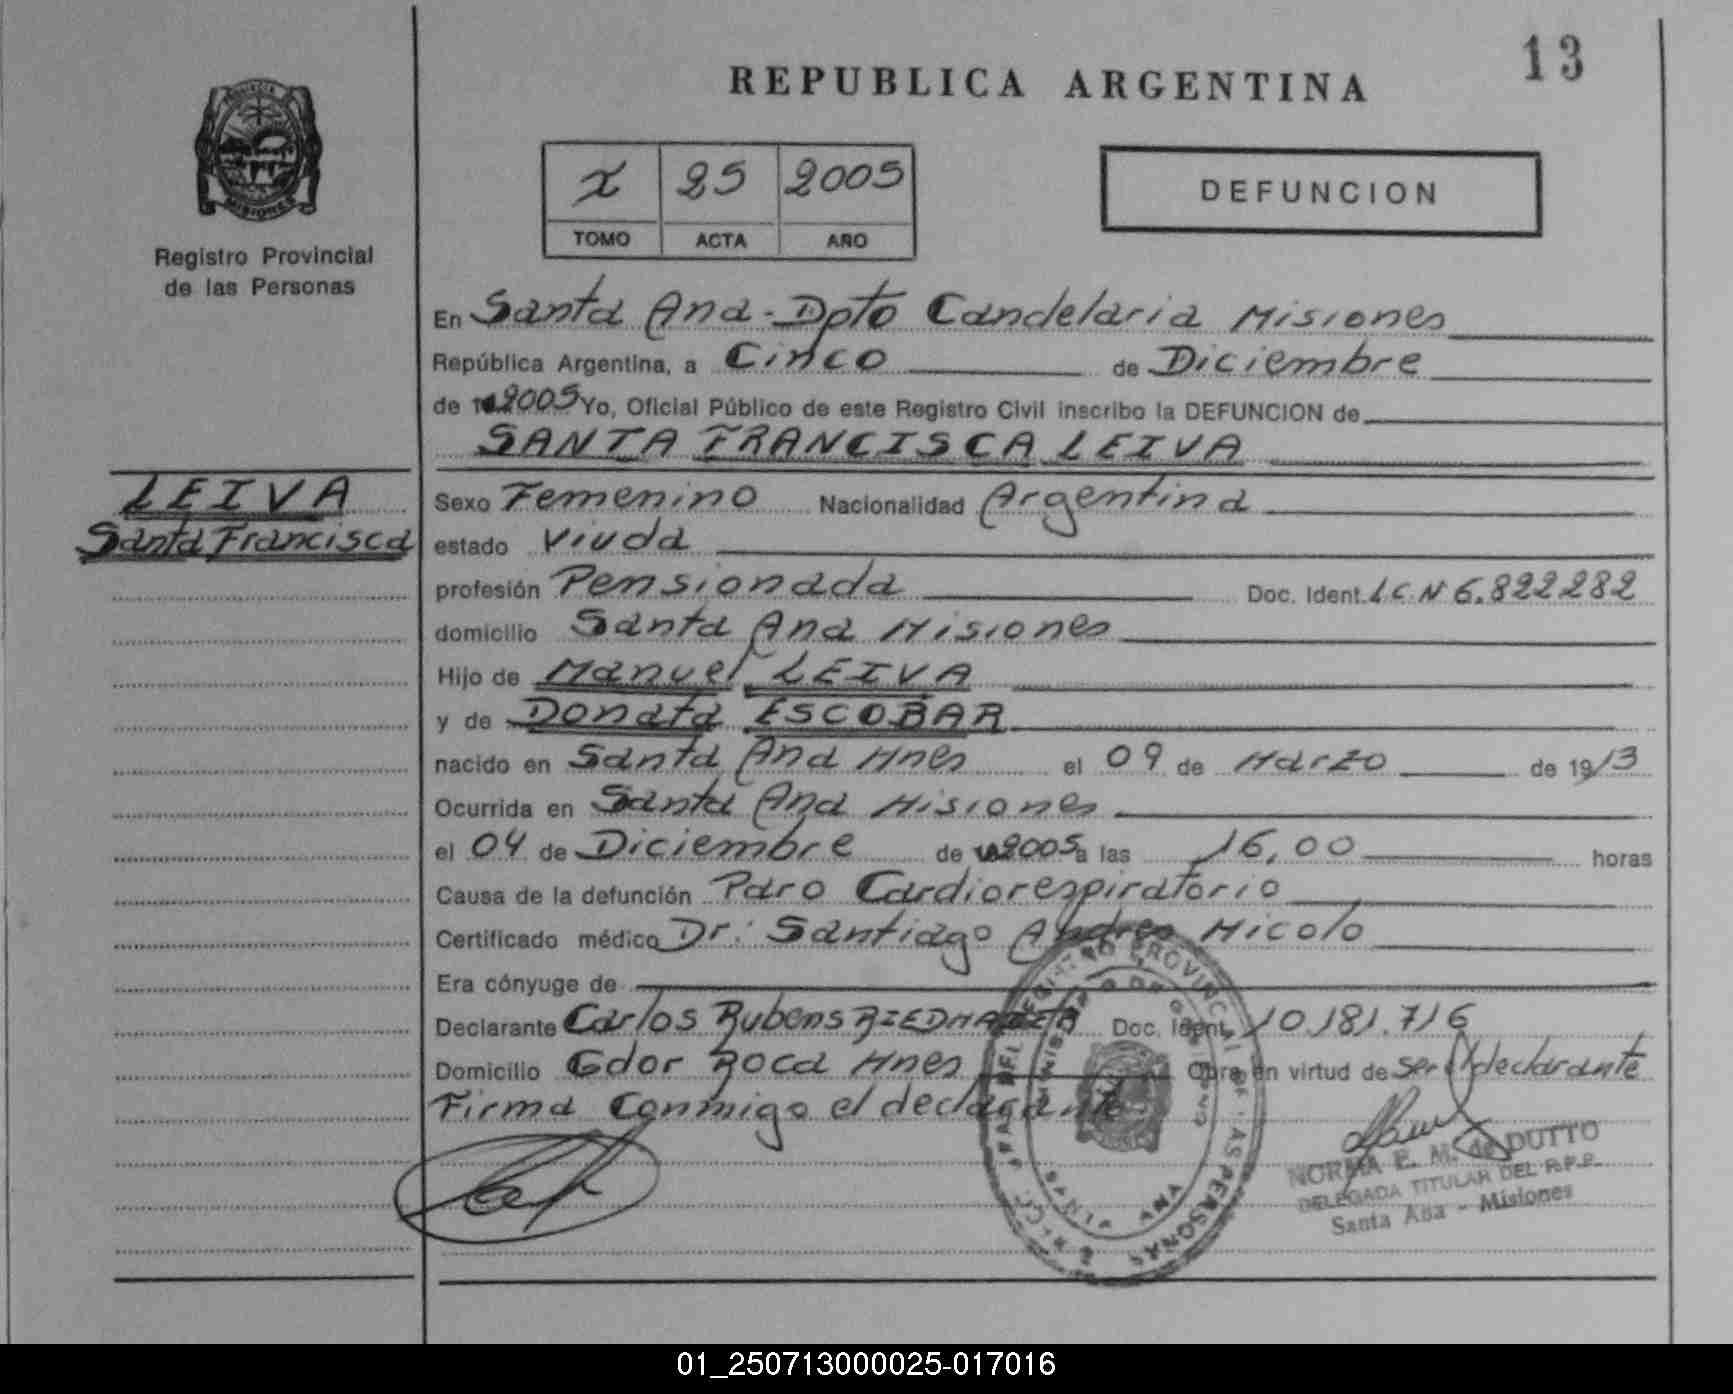 13
REPUBLICA ARGENTINA
PROVINCIA DE
MISIONES
Registro Provincial
de las Personas
25 2005
TOMO ACTA AÑO
DEFUNCION
En Santa Ana - Dpto Candelaria Misiones
República Argentina, a Cinco de Diciembre
de 2005 Yo, Oficial Público de este Registro Civil inscribo la DEFUNCION de
SANTA FRANCISCA LEIVA
LEIVA
Santa Francisca
Sexo Femenino Nacionalidad Argentina
estado Viuda
profesión Pensionada Doc. Ident. L C N 6.822282
domicilio Santa Ana Misiones
Hijo de Manuel LEIVA
y de Donata ESCOBAR
nacido en Santa Ana Mnes el 09 de Marzo de 1913
Ocurrida en Santa Ana Misiones
el 04 de Diciembre de 2005 a las 16,00 horas
Causa de la defunción Paro Cardiorespiratorio
Certificado médico Dr: Santiago Andres Micolo
Era cónyuge de
Declarante Carlos Rubens Doc. Ident. 10.181.716
Domicilio Gdor Roca Mnes Obra en virtud de ser el declarante
Firma Conmigo el declarante
REGISTRO PROVINCIAL DE LAS PERSONAS
SANTA ANA
NORMA E. M. de DUTTO
DELEGADA TITULAR DEL R.P.P.
Santa Ana - Misiones
01_250713000025-017016